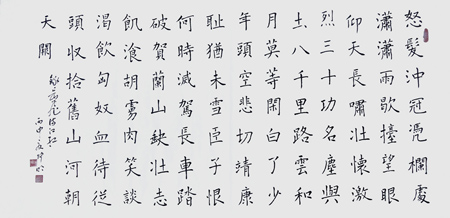 怒髮沖冠凴欄處
瀟瀟雨歇擡望眼
仰天長嘯壯懷激
烈三十功名塵與
土八千里路雲和
月莫等閑白了少
年頭空悲切靖康
耻猶未雪臣子恨
何時滅駕長車踏
破賀蘭山缺壯志
飢飡胡虜肉笑談
渴飲匈奴血待從
頭收拾舊山河朝
天闕
錄岳飛滿江紅
丙申